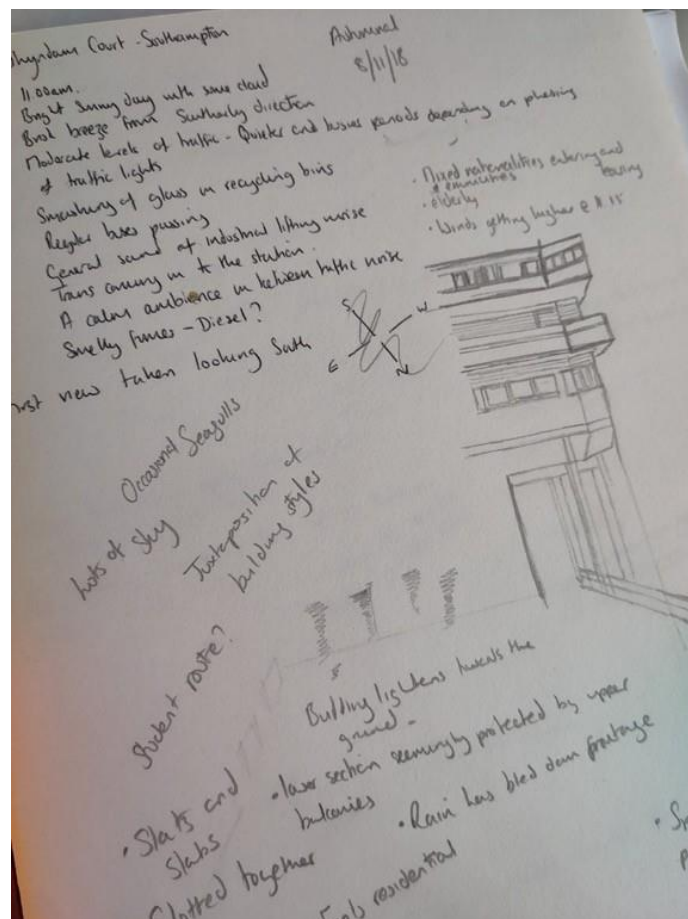 Whyndam Court - Southampton
Autumnal
8/11/18
11 00am.
Bright Sunny day with some cloud
Brisk breeze from Southerly direction
Moderate levels of traffic - Quieter and busier periods depending on phasing
of traffic lights
Smashing of glass in recycling bins
Regular buses passing
General sound of industrial lifting noise
Trans coming in to the station.
A calm ambience in between traffic noise
Smelly fumes - Diesel?
First view taken looking South
• Mixed nationalities entering and
& ethnicities
leaving
• elderly
• Winds getting higher @ 11.15
S
W
E
N
Occasional Seagulls
Lots of Sky
Juxtaposition of
building styles
Student route?
Building lightens towards the
ground -
• Slats and
Slabs
Slotted together
• lower section seemingly protected by upper
balconies
• Rain has bled down frontage
Feels residential